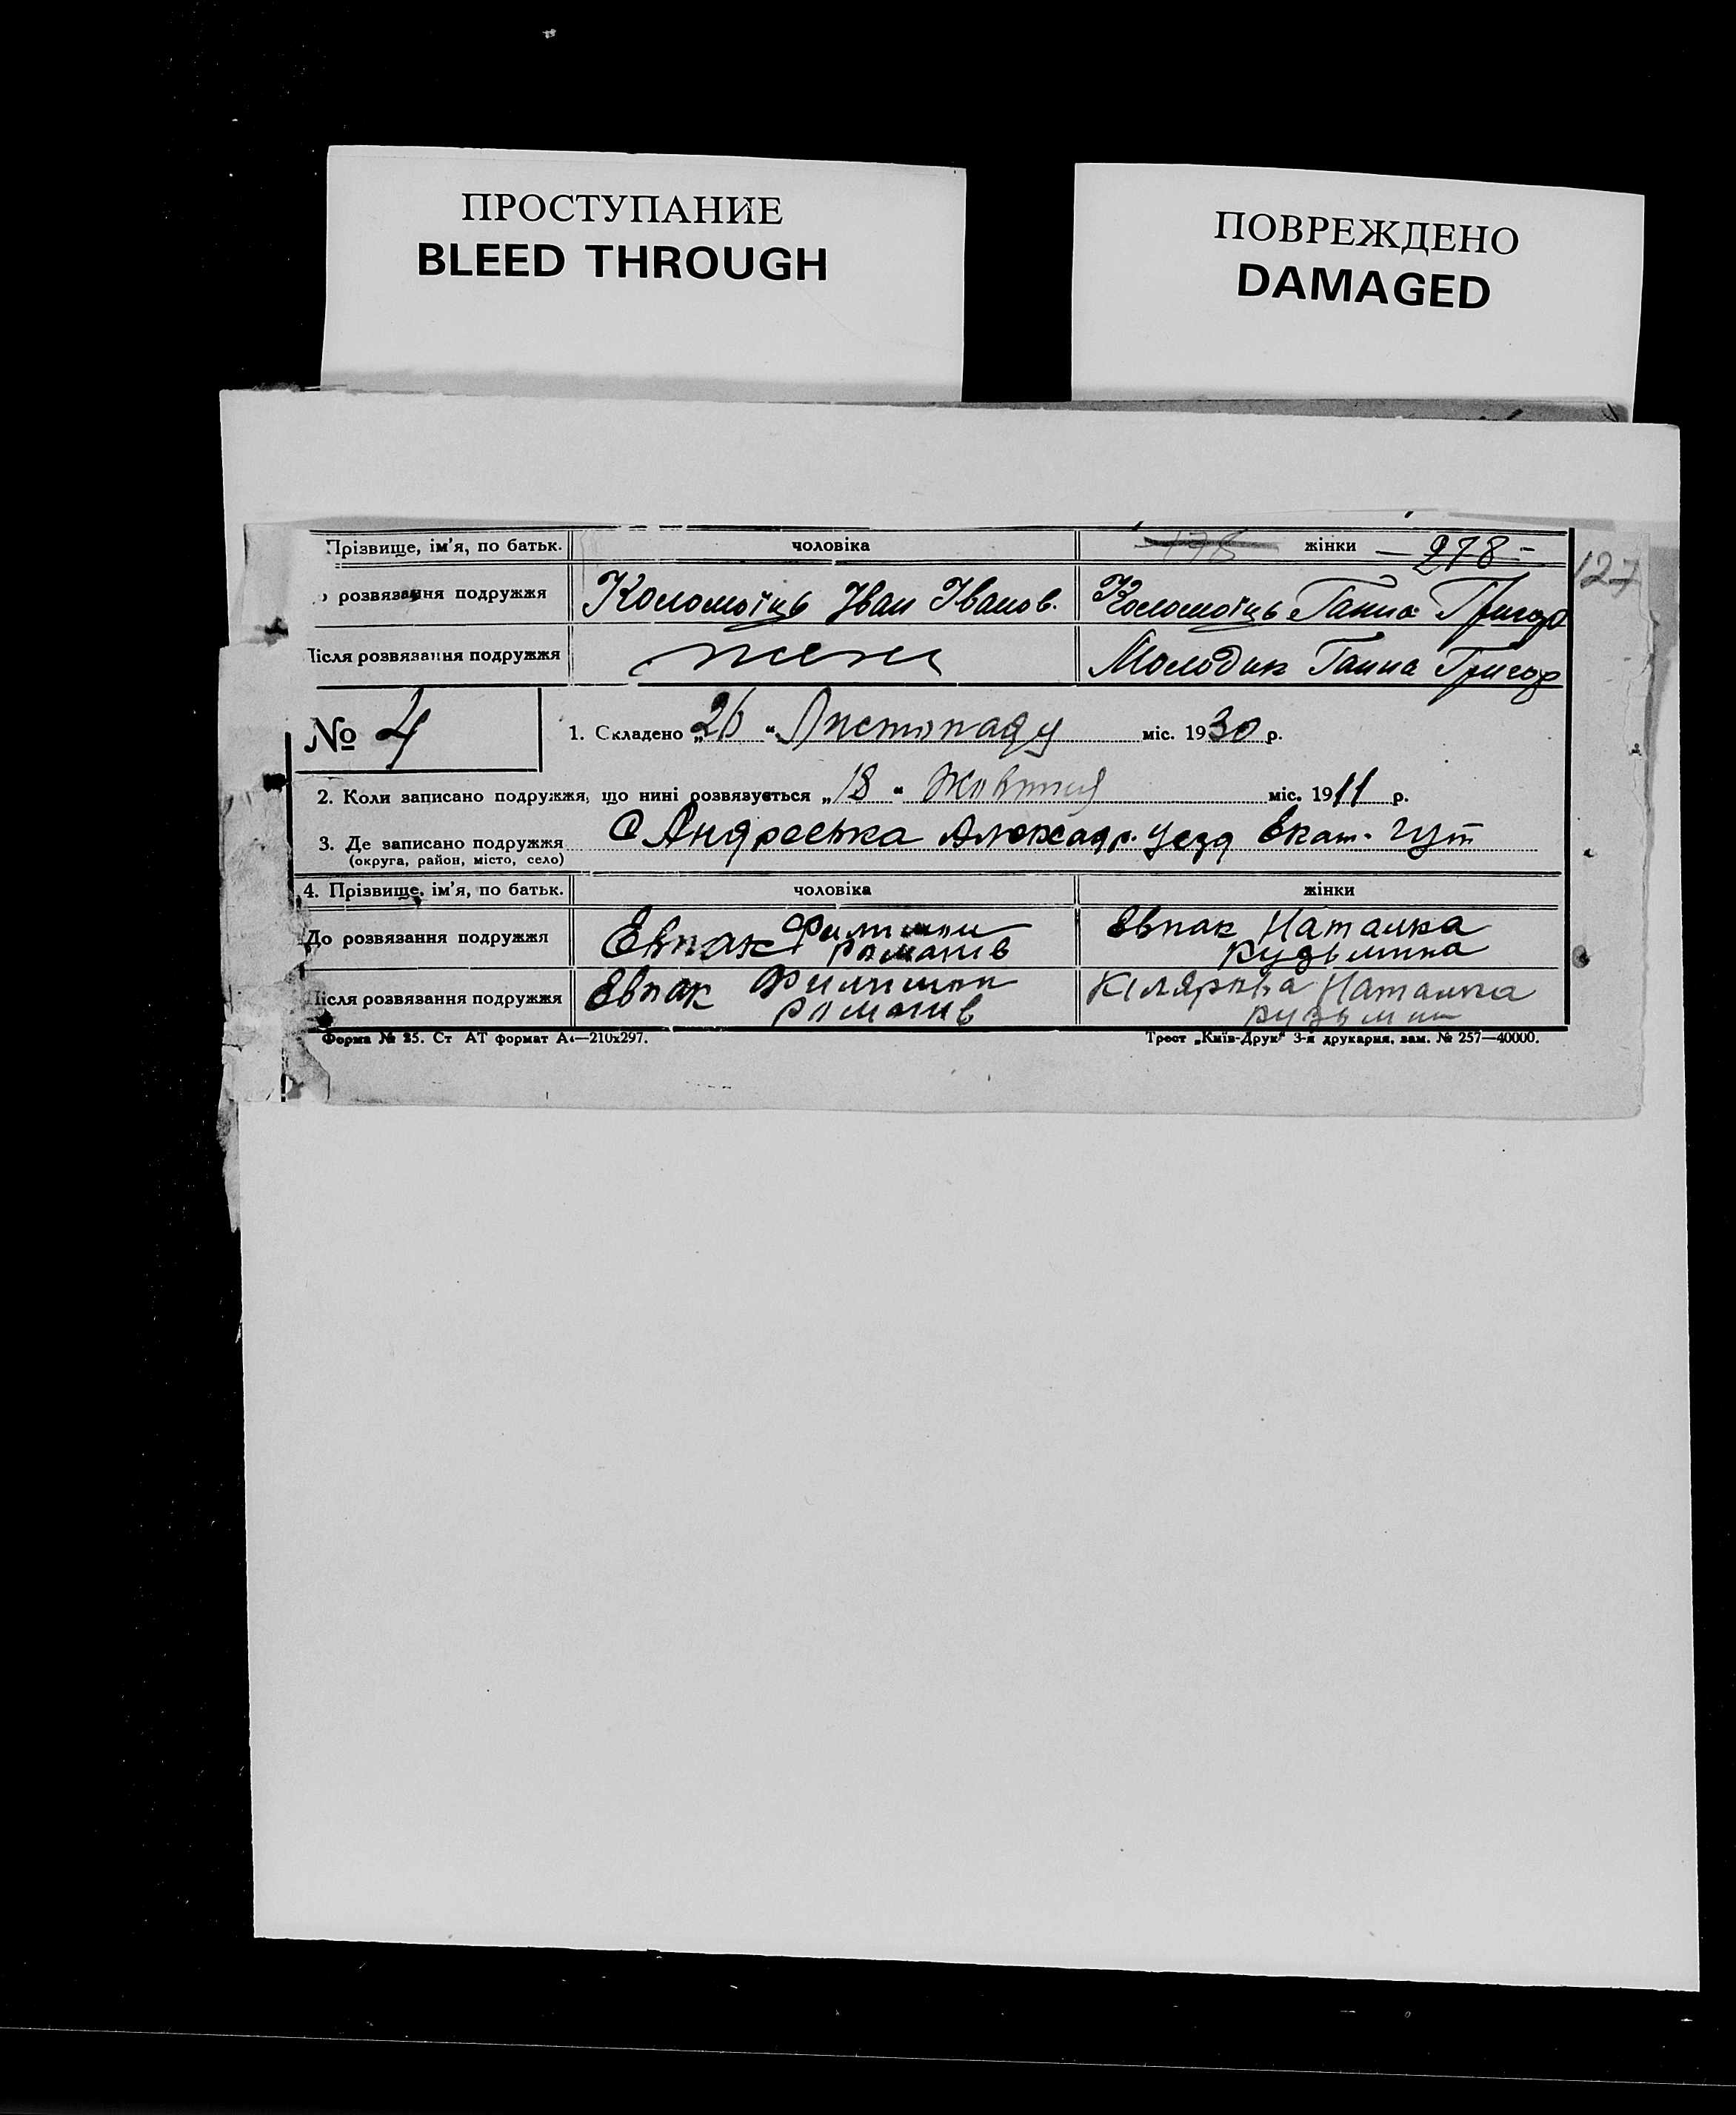 ПРОСТУПАНИЕ
BLEED THROUGH
ПОВРЕЖДЕНО
DAMAGED
Прізвище, ім'я, по батьк. чоловіка жінки — 278 —
127
розвязання подружжя Коломоїць Іван Іванов. Коломоїць Ганна Григор
Після розвязання подружжя Молодик Ганна Григор
№ 4 1. Складено „26“ Листопаду міс. 1930 р.
2. Коли записано подружжя, що нині розвязується „18“ Жовтня міс. 1911 р.
3. Де записано подружжя С Андреевка Александр. Уезд Екат. Губ
(округа, район, місто, село)
4. Прізвище, ім'я, по батьк. чоловіка жінки
До розвязання подружжя Евпак Филимон Романів Евпак Наталка Кузьминна
Після розвязання подружжя Евпак Филимон Романів Наталка Кузьмин
Форма № 25. Ст АТ формат А4—210х297. Трест „Київ-Друк“ 3-я друкарня, зам. № 257—40000.